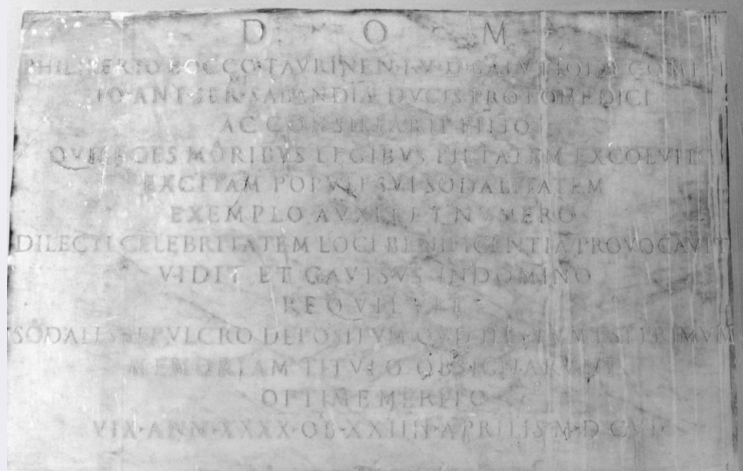 D. O. M
TAVRINEN·I·V·D·
IO·ANT·SER·SABAVDIÆ DVCIS PROTOMEDICI
AC CONSILIARII FILIO
MORIBVS LEGIBVS PIETATEM EXCOLVIT
EXCITAM POPVLI SVI SODALITATEM
EXEMPLO AVXIT ET NVMERO
DILECTI CELEBRITATEM LOCI BENIFICENTIA PROVOCAVIT
VIDIT ET GAVISVS IN DOMINO
REQVIEVIT
SODALES SEPVLCRO DEPOSITVM
MEMORIAM TITVLO OBSIGNARVNT
OPTIME MERITO
VIX·ANN·XXXX·OB·XXIIII·APRILIS M·D·CVI